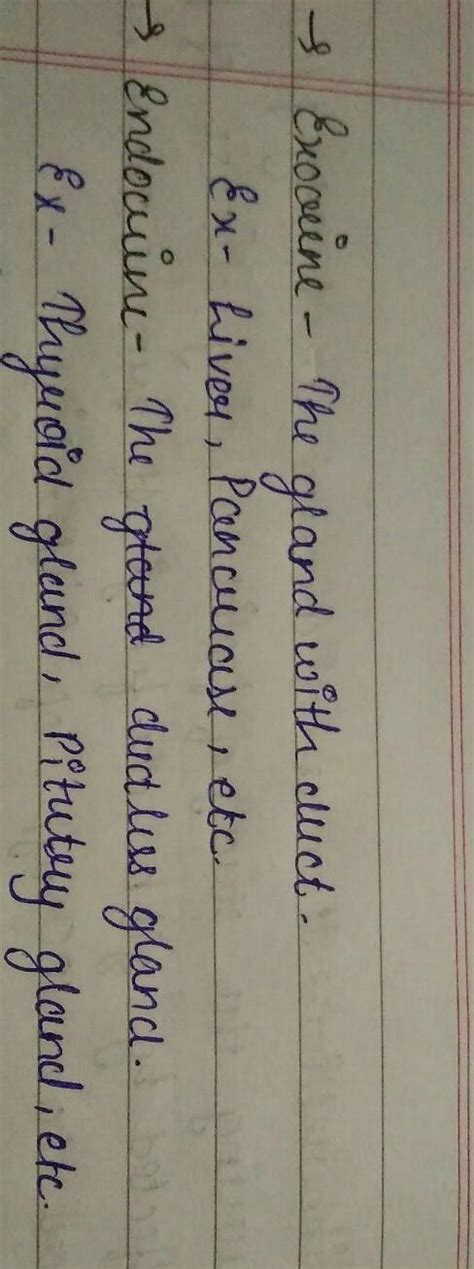 → Exocrine - The gland with duct.
Ex - Liver, Pancrease, etc.
→ Endocrine - The gland ductless gland.
Ex - Thyroid gland, Pitutory gland, etc.